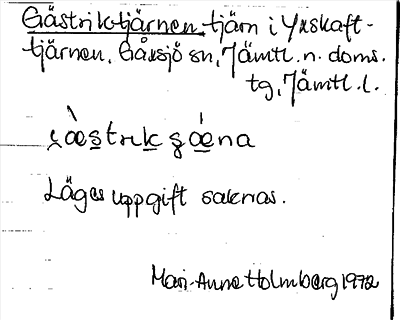 Gästriktjärnen, tjärn i Yxskaft-
tjärnen, Gåxsjö sn, Jämtl. n. doms.
tg, Jämtl. l.
Läges uppgift saknas.
Mari-Anne Holmberg 1972